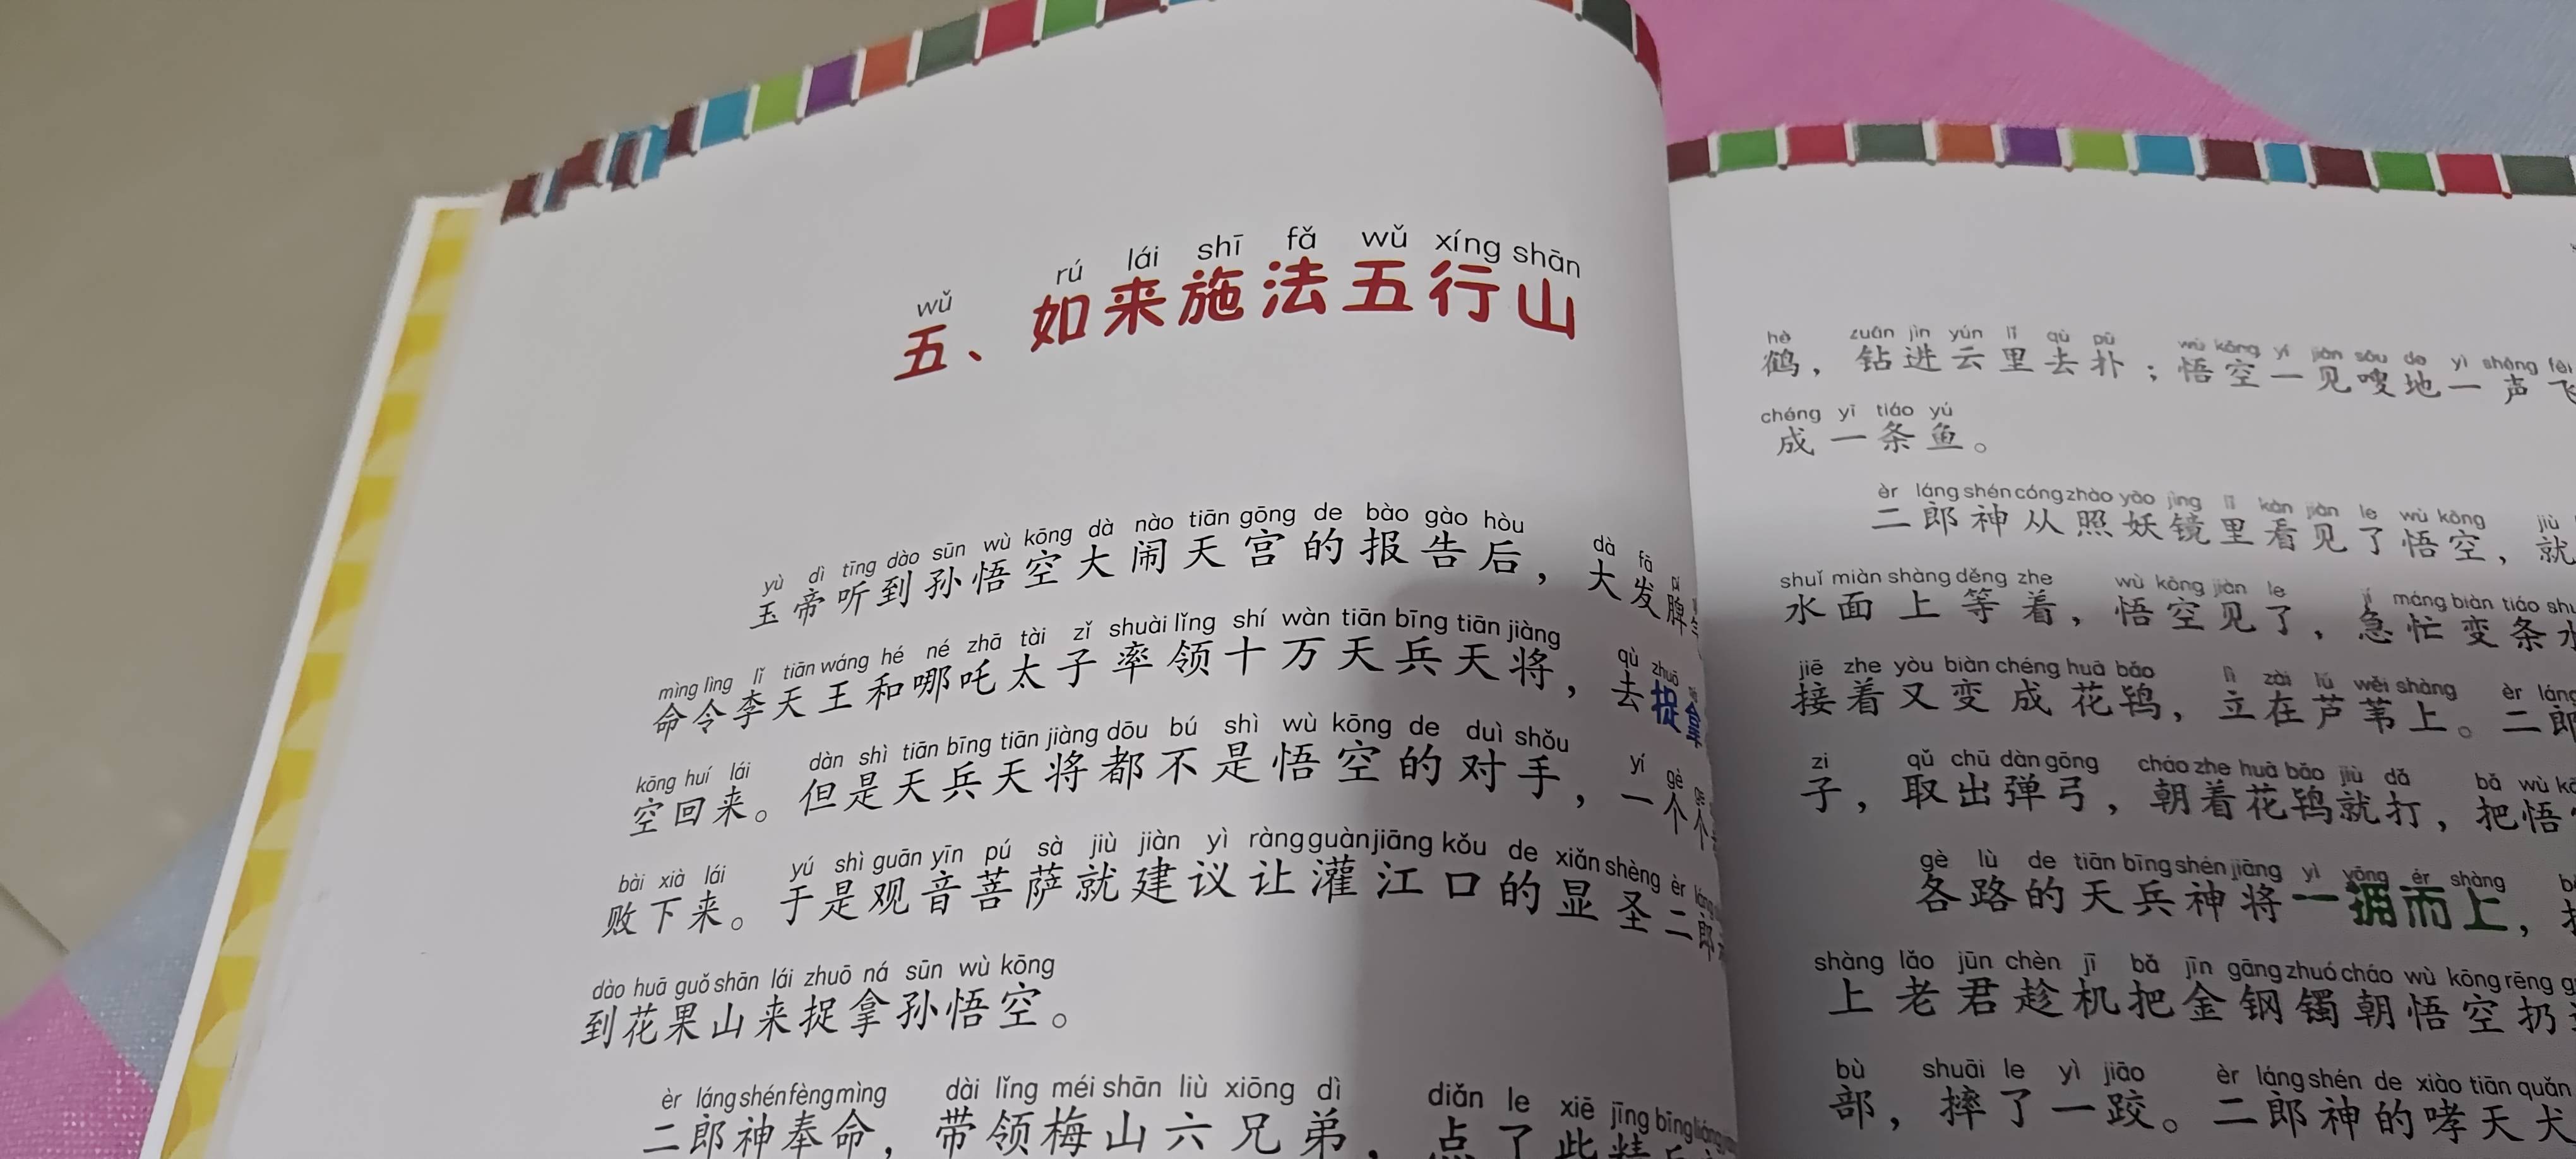 wǔ rú lái shī fǎ wǔ xíng shān
五、如来施法五行山
yù dì tīng dào sūn wù kōng dà nào tiān gōng de bào gào hòu dà fā pí
玉帝听到孙悟空大闹天宫的报告后，大发脾
mìng lìng lǐ tiān wáng hé né zhā tài zǐ shuài lǐng shí wàn tiān bīng tiān jiàng qù zhuō
命令李天王和哪吒太子率领十万天兵天将，去捉拿
kōng huí lái dàn shì tiān bīng tiān jiàng dōu bú shì wù kōng de duì shǒu yí gè
空回来。但是天兵天将都不是悟空的对手，一个个
bài xià lái yú shì guān yīn pú sà jiù jiàn yì ràng guàn jiāng kǒu de xiǎn shèng èr
败下来。于是观音菩萨就建议让灌江口的显圣二郎
dào huā guǒ shān lái zhuō ná sūn wù kōng
到花果山来捉拿孙悟空。
èr láng shén fèng mìng dài lǐng méi shān liù xiōng dì diǎn le xiē jīng bīng
二郎神奉命，带领梅山六兄弟，点了些精兵
hè zuān jìn yún lǐ qù pū wù kōng yí jiàn sōu de yì shēng fēi
鹤，钻进云里去扑；悟空一见嗖地一声飞
chéng yī tiáo yú
成一条鱼。
èr láng shén cóng zhào yāo jìng lǐ kàn jiàn le wù kōng jiù
二郎神从照妖镜里看见了悟空，就
shuǐ miàn shàng děng zhe wù kōng jiàn le jí máng biàn tiáo shu
水面上等着，悟空见了，急忙变条水
jiē zhe yòu biàn chéng huā bǎo lì zài lú wěi shàng èr láng
接着又变成花鸨，立在芦苇上。二郎
zi qǔ chū dàn gōng cháo zhe huā bǎo jiù dǎ bǎ wù kō
子，取出弹弓，朝着花鸨就打，把悟空
gè lù de tiān bīng shén jiāng yì yōng ér shàng
各路的天兵神将一拥而上，
shàng lǎo jūn chèn jī bǎ jīn gāng zhuó cháo wù kōng rēng
上老君趁机把金钢镯朝悟空扔
bù shuāi le yì jiāo èr láng shén de xiào tiān quǎn
部，摔了一跤。二郎神的哮天犬